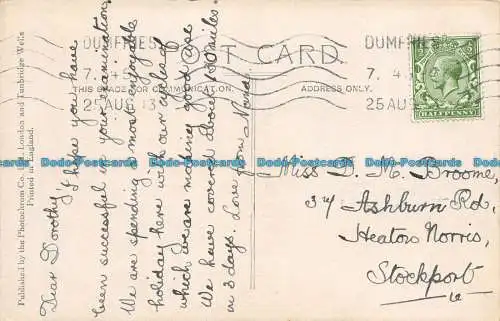 POST CARD.
THIS SPACE FOR COMMUNICATION.
ADDRESS ONLY.
DUMFRIES
7. 45
25 AUG 13
DUMFRIES
7. 4
25 AUG
HALFPENNY
Published by the Photochrom Co. Ltd., London and Tunbridge Wells
Printed in England.
Dear Dorothy,
I hope you have
been successful in your examination.
We are spending a most enjoyable
holiday here with our cycles of
which we are making good use
We have covered about 160 miles
in 3 days. Love from
Miss D. M. Broome,
34 Ashburn Rd,
Heaton Norris,
Stockport
Postcards-Postcards-Postcards